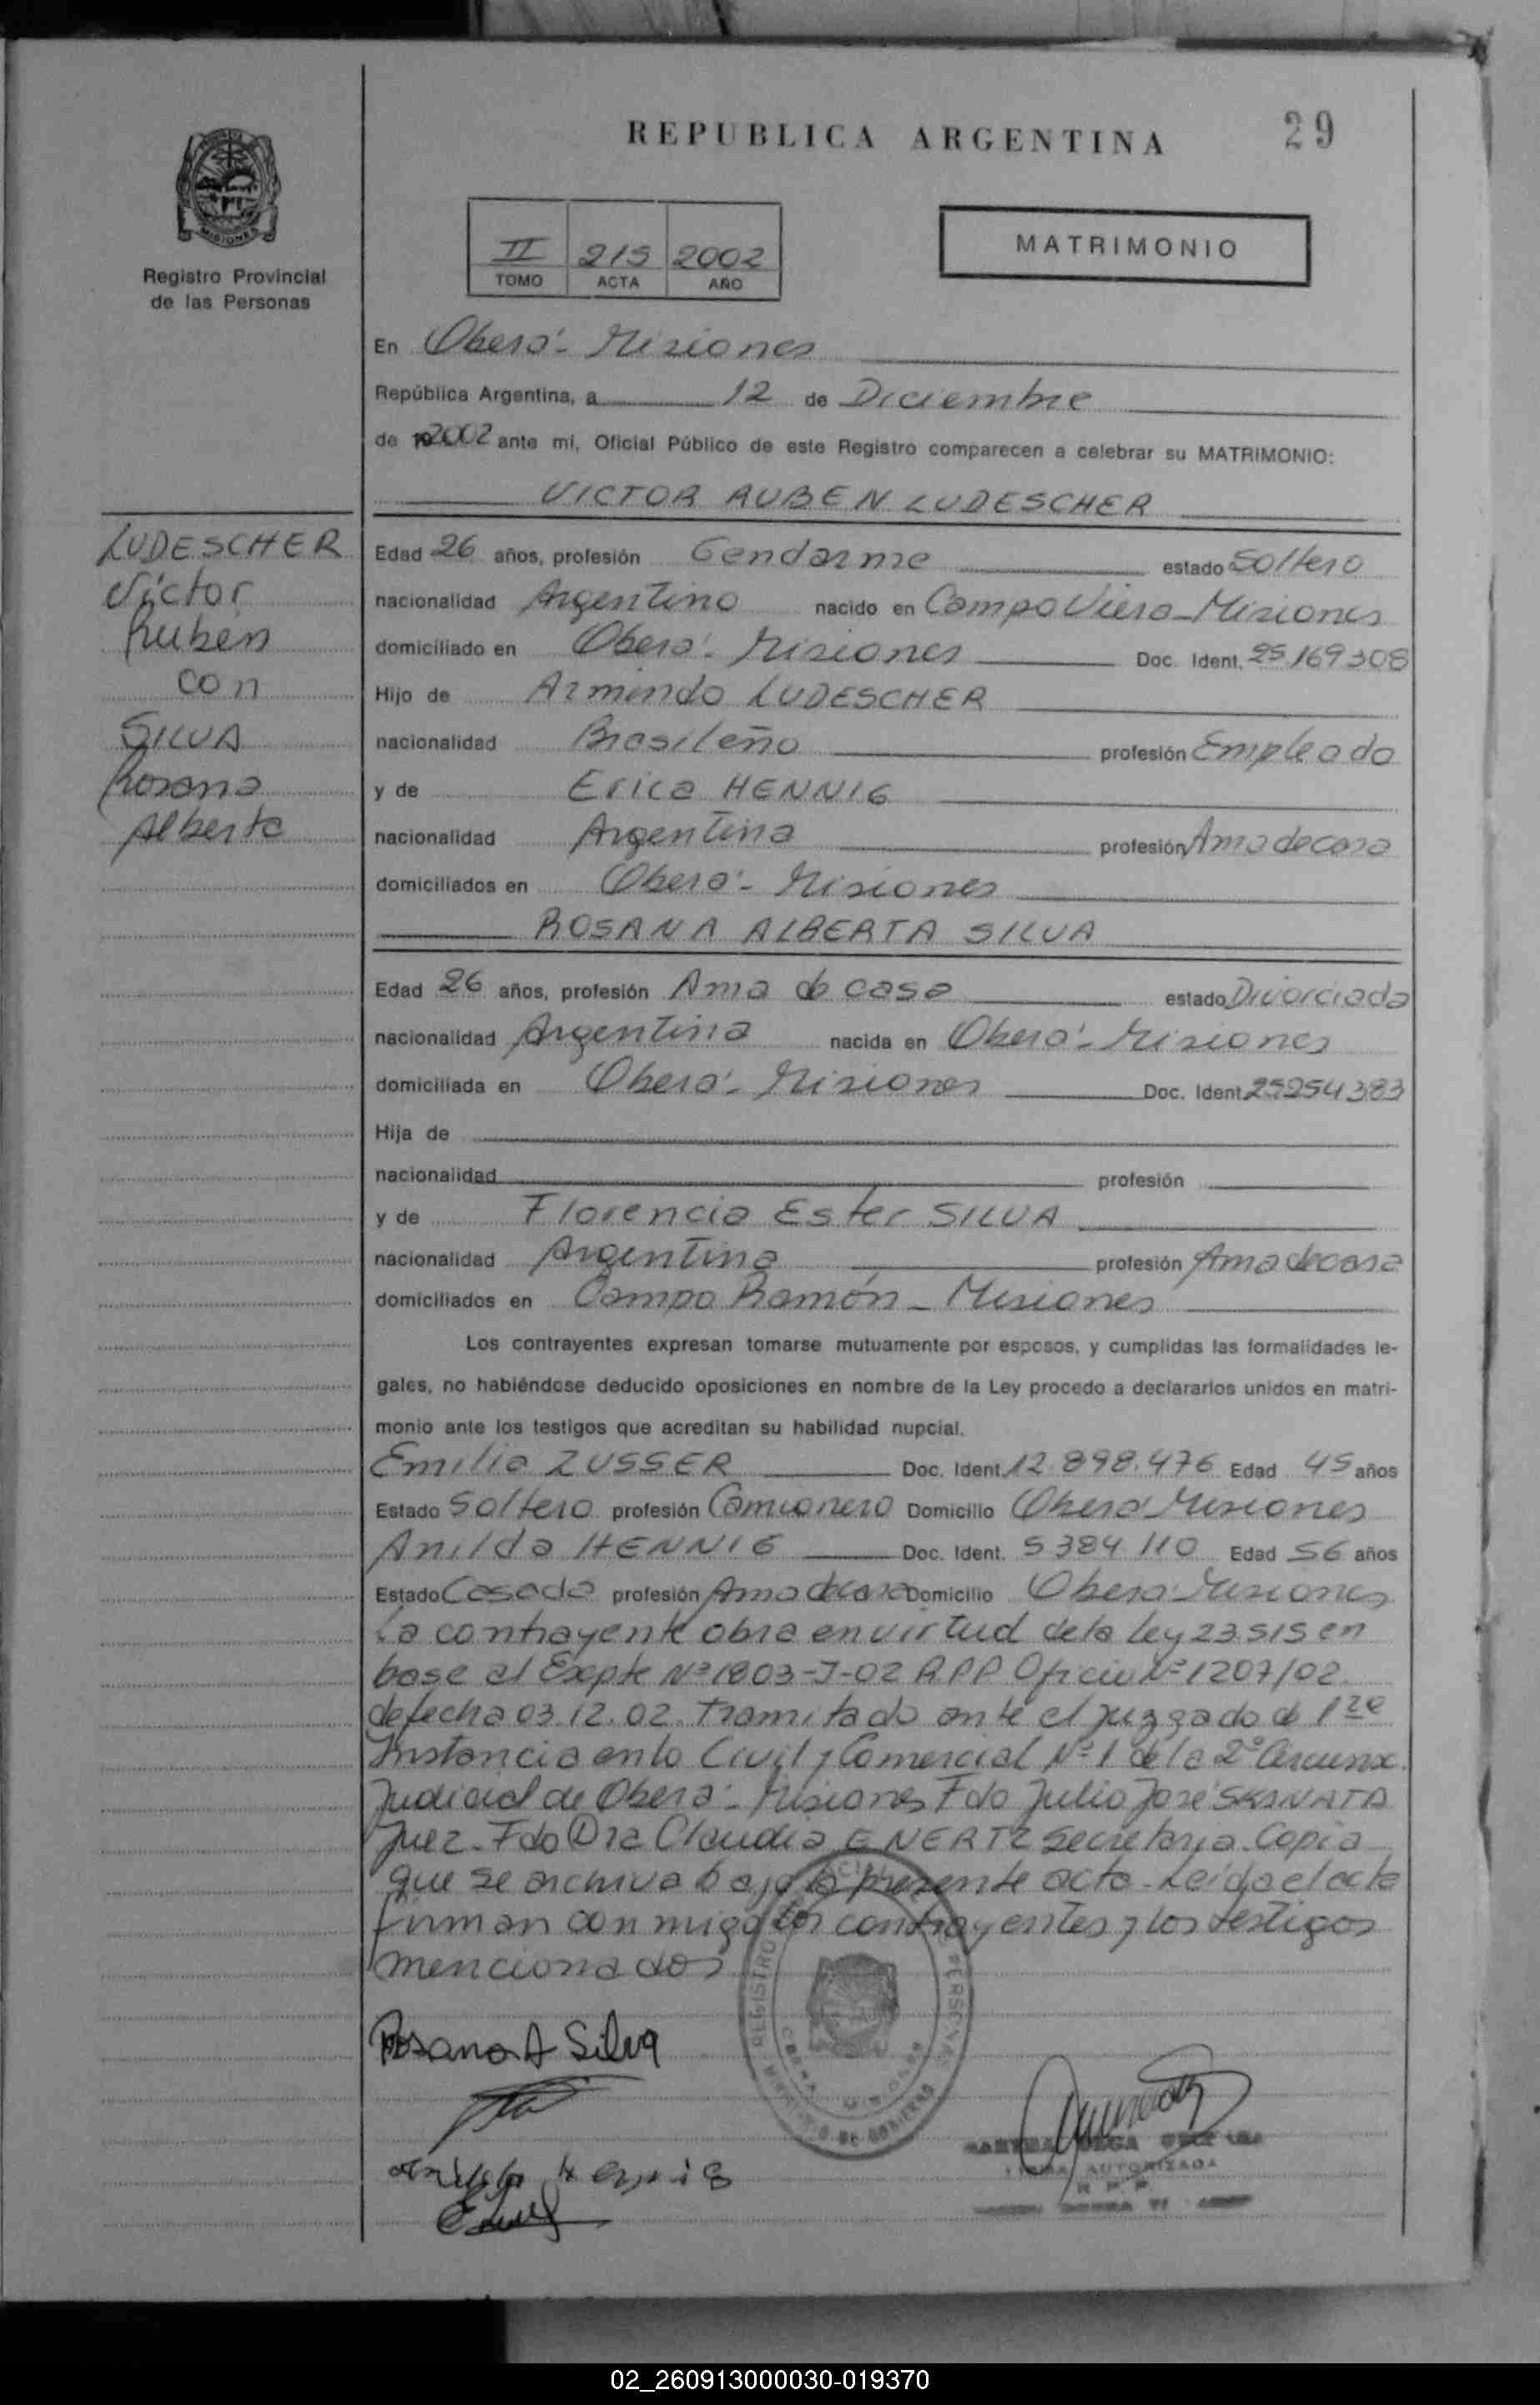 REPUBLICA ARGENTINA
29
Registro Provincial
de las Personas
II 215 2002
TOMO ACTA AÑO
MATRIMONIO
En Oberá - Misiones
República Argentina, a 12 de Diciembre
de 2002 ante mí, Oficial Público de este Registro comparecen a celebrar su MATRIMONIO:
VICTOR RUBEN LUDESCHER
LUDESCHER
Víctor
Rubén
con
SILVA
Rosana
Alberta
Edad 26 años, profesión Gendarme estado Soltero
nacionalidad Argentino nacido en Campo Viera - Misiones
domiciliado en Oberá - Misiones Doc. Ident. 25.169308
Hijo de Armindo LUDESCHER
nacionalidad Brasileño profesión Empleado
y de Erica HENNIG
nacionalidad Argentina profesión Ama de casa
domiciliados en Oberá - Misiones
ROSANA ALBERTA SILVA
Edad 26 años, profesión Ama de casa estado Divorciada
nacionalidad Argentina nacida en Oberá - Misiones
domiciliada en Oberá - Misiones Doc. Ident. 25254383
Hija de
nacionalidad profesión
y de Florencia Ester SILVA
nacionalidad Argentina profesión Ama de casa
domiciliados en Campo Ramón - Misiones
Los contrayentes expresan tomarse mutuamente por esposos, y cumplidas las formalidades le-
gales, no habiéndose deducido oposiciones en nombre de la Ley procedo a declararlos unidos en matri-
monio ante los testigos que acreditan su habilidad nupcial.
Emilio ZUSSER Doc. Ident. 12.898.476 Edad 45 años
Estado Soltero profesión Camionero Domicilio Oberá Misiones
Anilda HENNIG Doc. Ident. 5384110 Edad 56 años
Estado Casada profesión Ama de casa Domicilio Oberá - Misiones
La contrayente obra en virtud de la Ley 23.515 en
base al Expte Nº 1803-J-02 R.P.P. Oficio Nº 1207/02
de fecha 03.12.02. Tramitado ante el juzgado de 1ra
Instancia en lo Civil y Comercial Nº 1 de la 2º Circunsc.
Judicial de Oberá - Misiones Fdo Julio José SKANATA
Juez - Fdo Dra Claudia ENERTZ Secretaria. Copia
que se archiva bajo la presente acta. Leída el acta
firman conmigo los contrayentes y los testigos
mencionados
Rosana A Silva
Anilda Hennig
REGISTRO
MINISTERIO DE GOBIERNO
FIRMA AUTORIZADA
R.P.P.
02_260913000030-019370